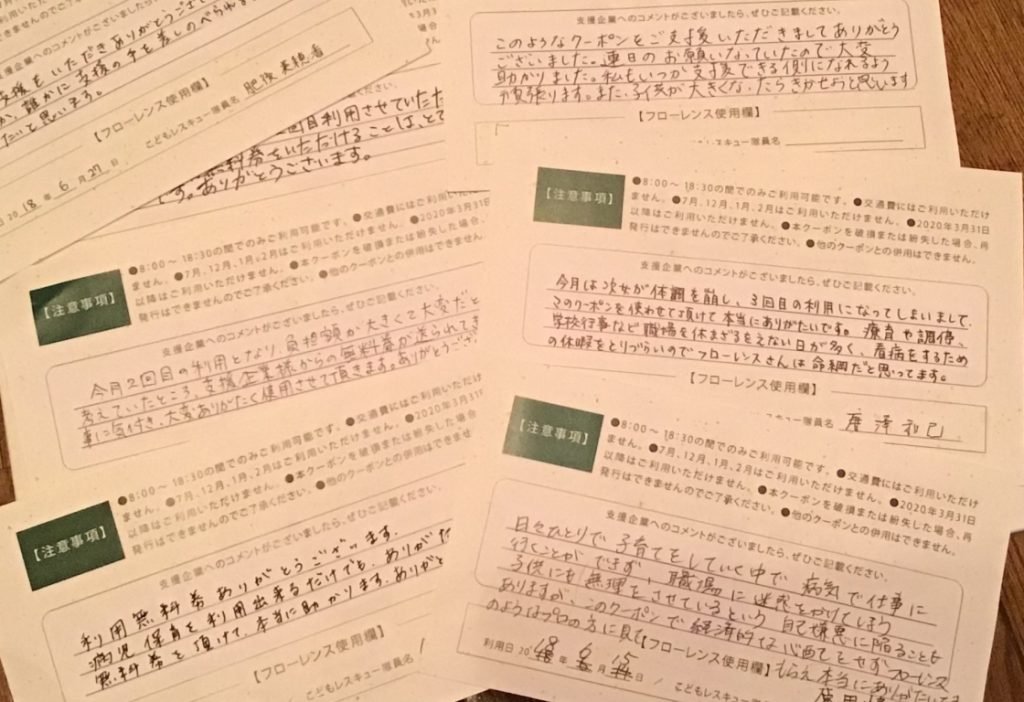 支援企業へのコメントがございましたら、ぜひご記載ください。
支援をいただきありがとうござ
か、誰かに支援の手を差しのべられ
たいと思います。
【フローレンス使用欄】
20 18 年 6 月 27 日
こどもレスキュー隊員名
回目利用させていただ
料券をいただけることは、とて
す。ありがとうございます。
支援企業へのコメントがございましたら、ぜひご記載ください。
このようなクーポンをご支援いただきましてありがとう
ございました。連日のお願いなっていたので大変
助かりました。私もいつか支援できる側になれるよう
頑張ります。また、子供が大きくなったらきかせようと思います
【フローレンス使用欄】
スキュー隊員名
【注意事項】
●8:00〜18:30の間でのみご利用可能です。●交通費にはご利用いただけ
ません。●7月、12月、1月、2月はご利用いただけません。●2020年3月31日
以降はご利用いただけません。●本クーポンを破損または紛失した場合、再
発行はできませんのでご了承ください。●他のクーポンとの併用はできません。
支援企業へのコメントがございましたら、ぜひご記載ください。
今月は次女が体調を崩し、3回目の利用になってしまいまして、
このクーポンを使わせて頂けて本当にありがたいです。療育や調停、
学校行事など職場を休まざるをえない日が多く、看病をするため
の休暇をとりづらいのでフローレンスさんは命綱だと思ってます。
【フローレンス使用欄】
スキュー隊員名
【注意事項】
●8:00〜18:30の間でのみご利用可能です。●交通費にはご利用いただけ
ません。●7月、12月、1月、2月はご利用いただけません。●2020年3月31日
以降はご利用いただけません。●本クーポンを破損または紛失した場合、
発行はできませんのでご了承ください。●他のクーポンとの併用はできません。
支援企業へのコメントがございましたら、ぜひご記載ください。
今月2回目の利用となり、負担額が大きくて大変だと
考えていたところ、支援企業様からの無料券が送られてき
事に気付き、大変ありがたく使用させて頂きます。ありがとうござ
【注意事項】
●8:00〜18:30の間でのみご利用可能です。●交通費にはご利用いただけ
ません。●7月、12月、1月、2月はご利用いただけません。●2020年3月31日
以降はご利用いただけません。●本クーポンを破損または紛失した場合、再
発行はできませんのでご了承ください。●他のクーポンとの併用はできません。
支援企業へのコメントがございましたら、ぜひご記載ください。
日々ひとりで子育てをしていく中で病気で仕事に
行くことができず、職場に迷惑をかけてしまう
子供にも無理をさせているという自己嫌悪に陥ることも
ありますが、このクーポンで経済的な心配をせずフローレンス
のようなプロの方に
もらえ本当にありがたいです
【フローレンス使用欄】
利用日 20 18 年 6 月 15 日
こどもレスキュー隊員名
【注意事項】
●8:00〜18:30の間でのみご利用可能です。●交通費にはご利用いただけ
ません。●7月、12月、1月、2月はご利用いただけません。●2020年3月31日
以降はご利用いただけません。●本クーポンを破損または紛失した場合
発行はできませんのでご了承ください。●他のクーポンとの併用はできませ
支援企業へのコメントがございましたら、ぜひご記載ください。
利用無料券ありがとうございます。
病児保育を利用出来るだけでも、ありがた
無料券を頂けて、本当に助かります。ありがと
【フローレンス使用欄】
こどもレスキュー隊員名